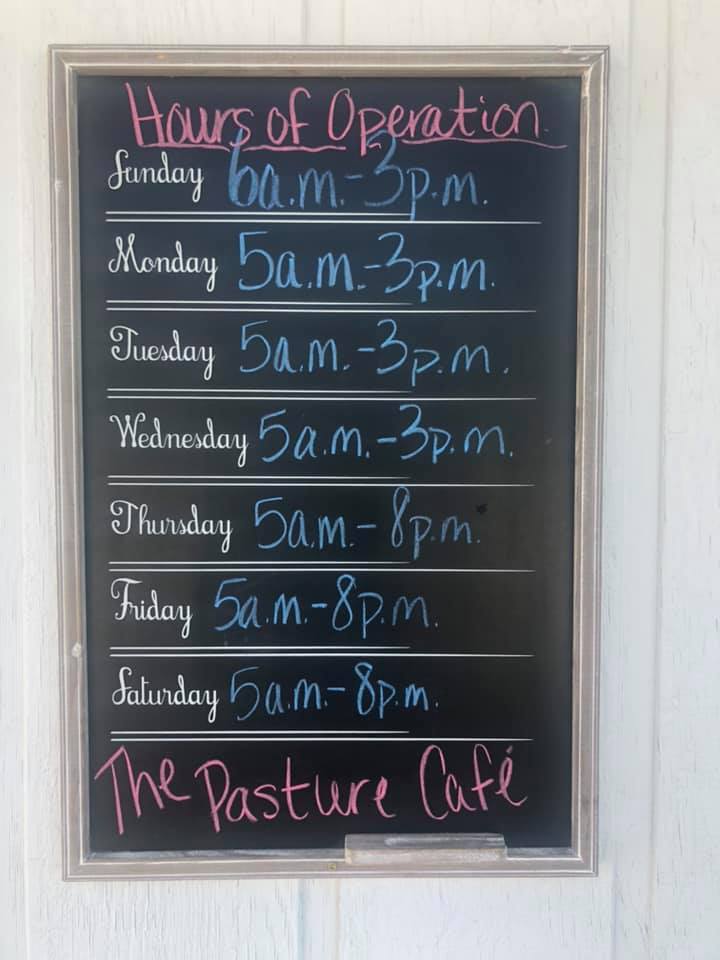 Hours of Operation
Sunday 6a.m.-3p.m.
Monday 5a.m.-3p.m.
Tuesday 5a.m.-3p.m.
Wednesday 5a.m.-3p.m.
Thursday 5a.m.-8p.m.
Friday 5a.m.-8p.m.
Saturday 5a.m.-8p.m.
The Pasture Café